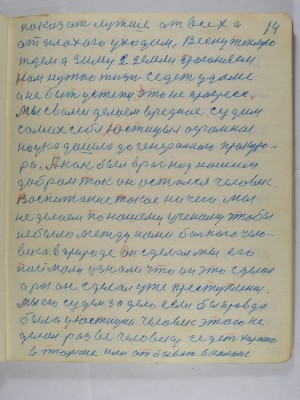 показат лутшие от всех а 14
от плохого уходим, Весну теплую
ждем а зиму з земли прогоняем.
Нам нужно жизн седет удоме
и не быт устену Это не прогресс.
Мы свами делаем вредное судим
самих себя Юстицыя огромная
наука дошло до генерального прокуро-
ра. А как был враг над нашим
добром так он остался человек.
Воспитание такое на чего мы
не делаем по нашему ученому чтобы
небыло между нами больного чело-
века вприроде он сделал мы его
поймали узнали что он это сделал
а раз он сделал уже преступление.
Мы его судим за дело если бы правда
была у юстицыи человек этого не
делал разве человеку седет хорошо
в тюрме или отбывать внаказа